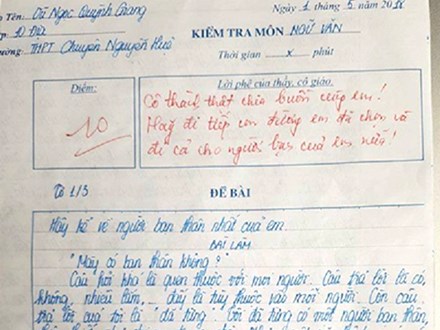 Tên: Vũ Ngọc Quỳnh Giang
Ngày 1 tháng 5 năm 2018
10 Địa
KIỂM TRA MÔN NGỮ VĂN
ường: THPT Chuyên Nguyễn Huệ
Thời gian x phút
Điểm:
10
Lời phê của thầy, cô giáo.
Cô thành thật chia buồn cùng em!
Hãy đi tiếp con đường em đã chọn và
đi cả cho người bạn của em nữa!
Tờ 1/3
ĐỀ BÀI
Hãy kể về người bạn thân nhất của em.
BÀI LÀM
"Mày có bạn thân không?"
Câu hỏi khá là quen thuộc với mọi người. Câu trả lời là có,
không, nhiều lắm, ... đấy là tùy thuộc vào mỗi người. Còn câu
trả lời của tôi là "đã từng". Tôi đã từng có một người bạn thân,